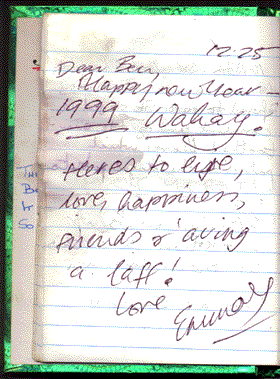 12.25
Dear Ben,
Happy new Year -
1999 Wahay!
Heres to life,
love, happiness,
friends & 'aving
a laff!
Love
Emma